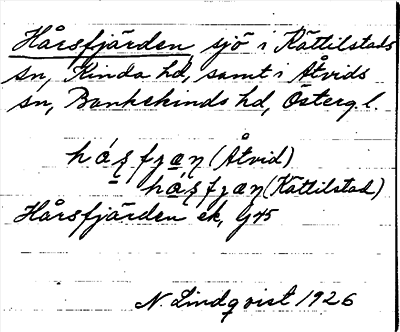 Hårsfjärden sjö i Kättilstads
sn, Kinda hd, samt i Åtvids
sn, Bankekinds hd, Östergl.
(Åtvid)
(Kättilstad)
Hårsfjärden ek,
N. Lindqvist 1926